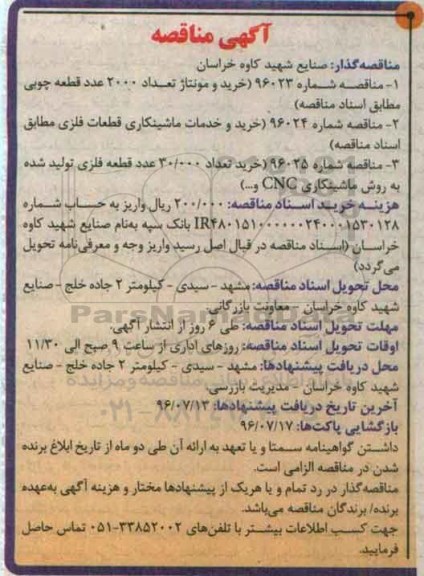 آگهی مناقصه
مناقصه‌گذار: صنایع شهید کاوه خراسان
۱- مناقصه شماره ۹۶۰۲۳ (خرید و مونتاژ تعداد ۲۰۰۰ عدد قطعه چوبی
مطابق اسناد مناقصه)
۲- مناقصه شماره ۹۶۰۲۴ (خرید و خدمات ماشینکاری قطعات فلزی مطابق
اسناد مناقصه)
۳- مناقصه شماره ۹۶۰۲۵ (خرید تعداد ۳۰/۰۰۰ عدد قطعه فلزی تولید شده
به روش ماشینکاری CNC و...)
هزینه خرید اسناد مناقصه: ۲۰۰/۰۰۰ ریال واریز به حساب شماره
IR۴۸۰۱۵۱۰۰۰۰۰۰۲۴۰۰۰۱۵۳۰۱۲۸ بانک سپه به‌نام صنایع شهید کاوه
خراسان (اسناد مناقصه در قبال اصل رسید واریز وجه و معرفی‌نامه تحویل
می‌گردد)
محل تحویل اسناد مناقصه: مشهد - سیدی - کیلومتر ۲ جاده خلج - صنایع
شهید کاوه خراسان - معاونت بازرگانی.
ParsNamadData
مهلت تحویل اسناد مناقصه: طی ۶ روز از انتشار آگهی.
اوقات تحویل اسناد مناقصه: روزهای اداری از ساعت ۹ صبح الی ۱۱/۳۰
محل دریافت پیشنهادها: مشهد - سیدی - کیلومتر ۲ جاده خلج - صنایع
شهید کاوه خراسان - مدیریت بازرسی.
آخرین تاریخ دریافت پیشنهادها: ۹۶/۰۷/۱۳
بازگشایی پاکت‌ها: ۹۶/۰۷/۱۷
داشتن گواهینامه سمتا و یا تعهد به ارائه آن طی دو ماه از تاریخ ابلاغ برنده
شدن در مناقصه الزامی است.
مناقصه‌گذار در رد تمام و یا هریک از پیشنهادها مختار و هزینه آگهی به‌عهده
برنده/ برندگان مناقصه می‌باشد.
جهت کسب اطلاعات بیشتر با تلفن‌های ۳۳۸۵۲۰۰۲-۰۵۱ تماس حاصل
فرمایید.